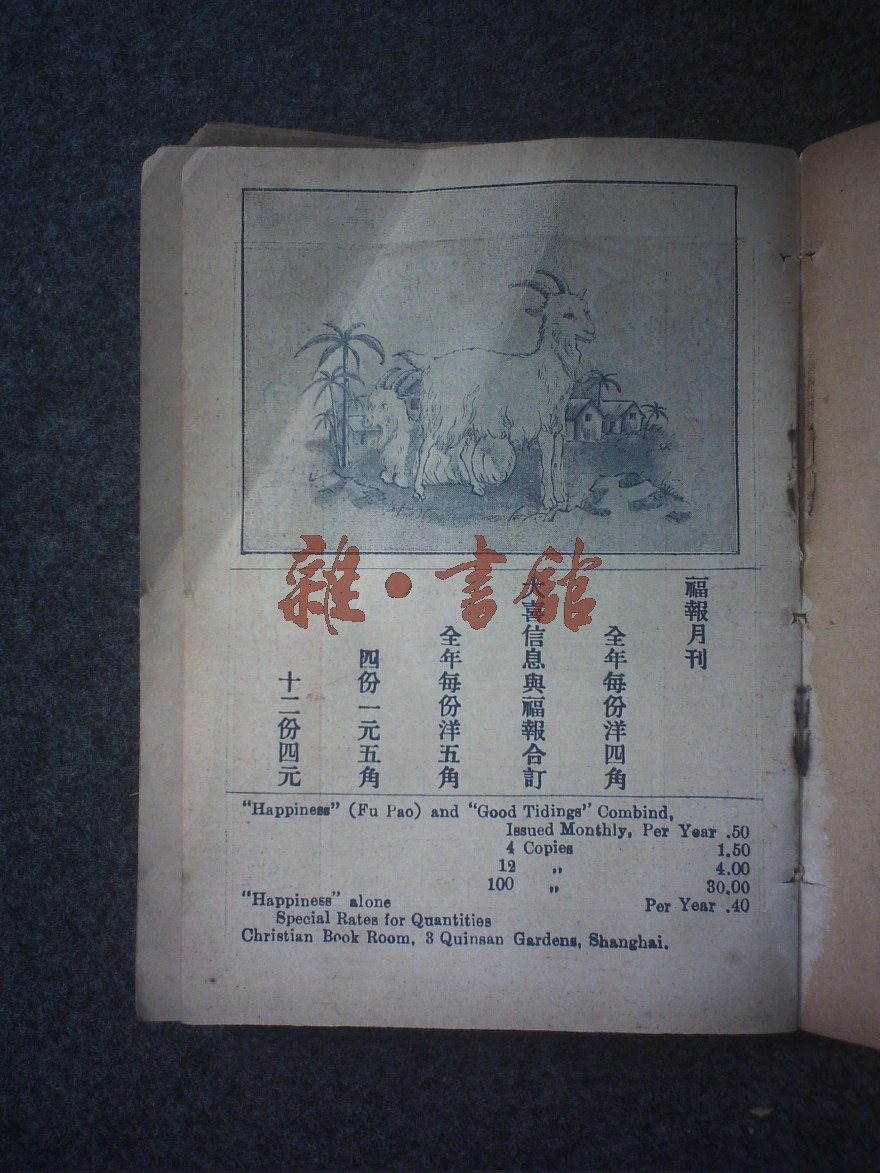 雜·書館
福報月刊
全年每份洋四角
大喜信息與福報合訂
全年每份洋五角
四份一元五角
十二份四元
"Happiness" (Fu Pao) and "Good Tidings" Combind,
Issued Monthly, Per Year .50
4 Copies 1.50
12 „ 4.00
100 „ 30.00
"Happiness" alone Per Year .40
Special Rates for Quantities
Christian Book Room, 3 Quinsan Gardens, Shanghai.